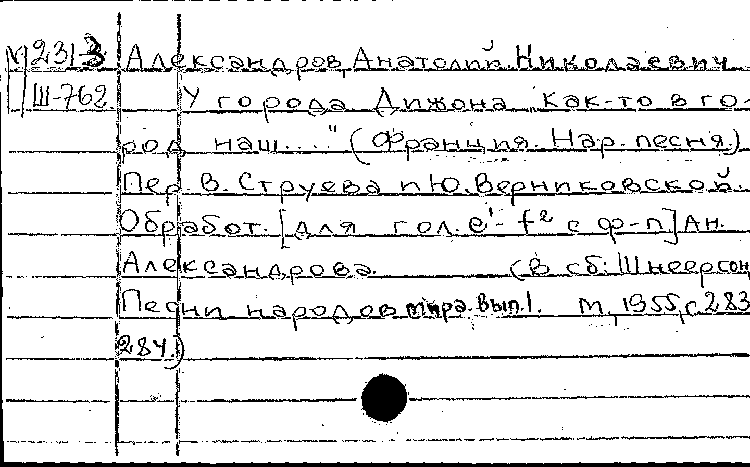 М 231-3 Александров, Анатолий Николаевич
Ш-762 У города Дижона как-то в го-
род наш...." (Франция. Нар. песня.)
Пер. В. Струева и Ю. Верниковской.
Обработ. [для гол. e¹- f² с ф-п] Ан.
Александрова. (В сб: Шнеерсон,
Песни народов мира. Вып.1. М., 1955, с. 283
284.)